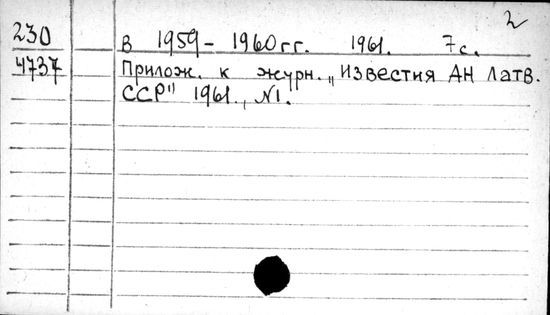 2
230 в 1959 - 1960 гг. 1961. 7 с.
4737 Прилож. к журн. „Известия АН Латв.
ССР" 1961., №1.